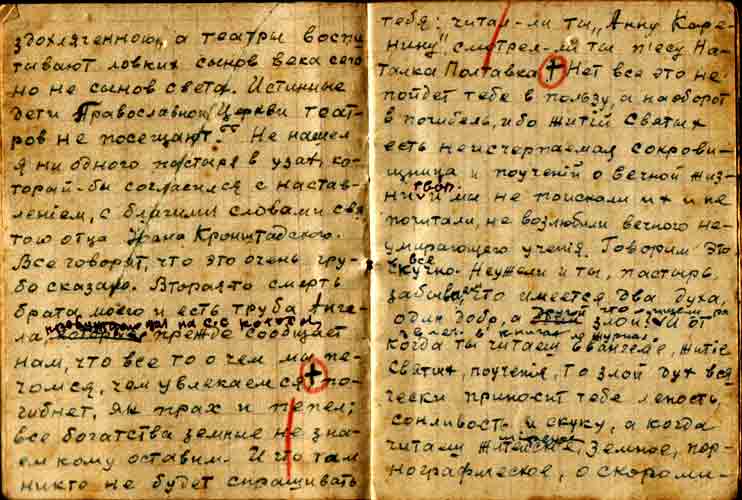 здохляченною, а театры воспи
тывают ловких сынов века сего
но не сынов света. Истинные
дети Православной Церкви теат-
ров не посещают." Не нашел
я ни одного пастыря в узах, ко-
торай-бы согласился с настав-
лением, с благими словами свя
того отца Ивана Кронштадского.
Все говорят, что это очень гру-
бо сказано. Вторая-то смерть
брата моего и есть труба Анге-
ла прежде сообщает
нам, что все то о чем мы пе-
чомся, чем увлекаемся + по-
гибнет, як прах и пепел;
все богатства земные не зна-
ем кому оставим. И что там
никто не будет спрашивать
тебя: читал-ли ты „Анну Каре-
нину", смотрел-ли ты пъесу На-
талка Полтавка + Нет все это не
пойдет тебе в пользу, а наоборот
в погибель, ибо житій Святых
есть неисчерпаемая сокрови-
щница и поученій о вечной жиз-
ни, и мы не поискали их и не
почитали, не возлюбили вечного не-
умирающего ученія. Говорим это
все
скучно. Неужели и ты, пастырь,
забываеш что имеется два духа,
один добр, а злой? И от
когда ты читаеш Евангеліе, житіе
Святых, поученія, То злой дух вся
чески приносит тебе леность,
сонливость и скуку, а когда
читаеш житейское, земное, пор-
нографическое, о скороми-